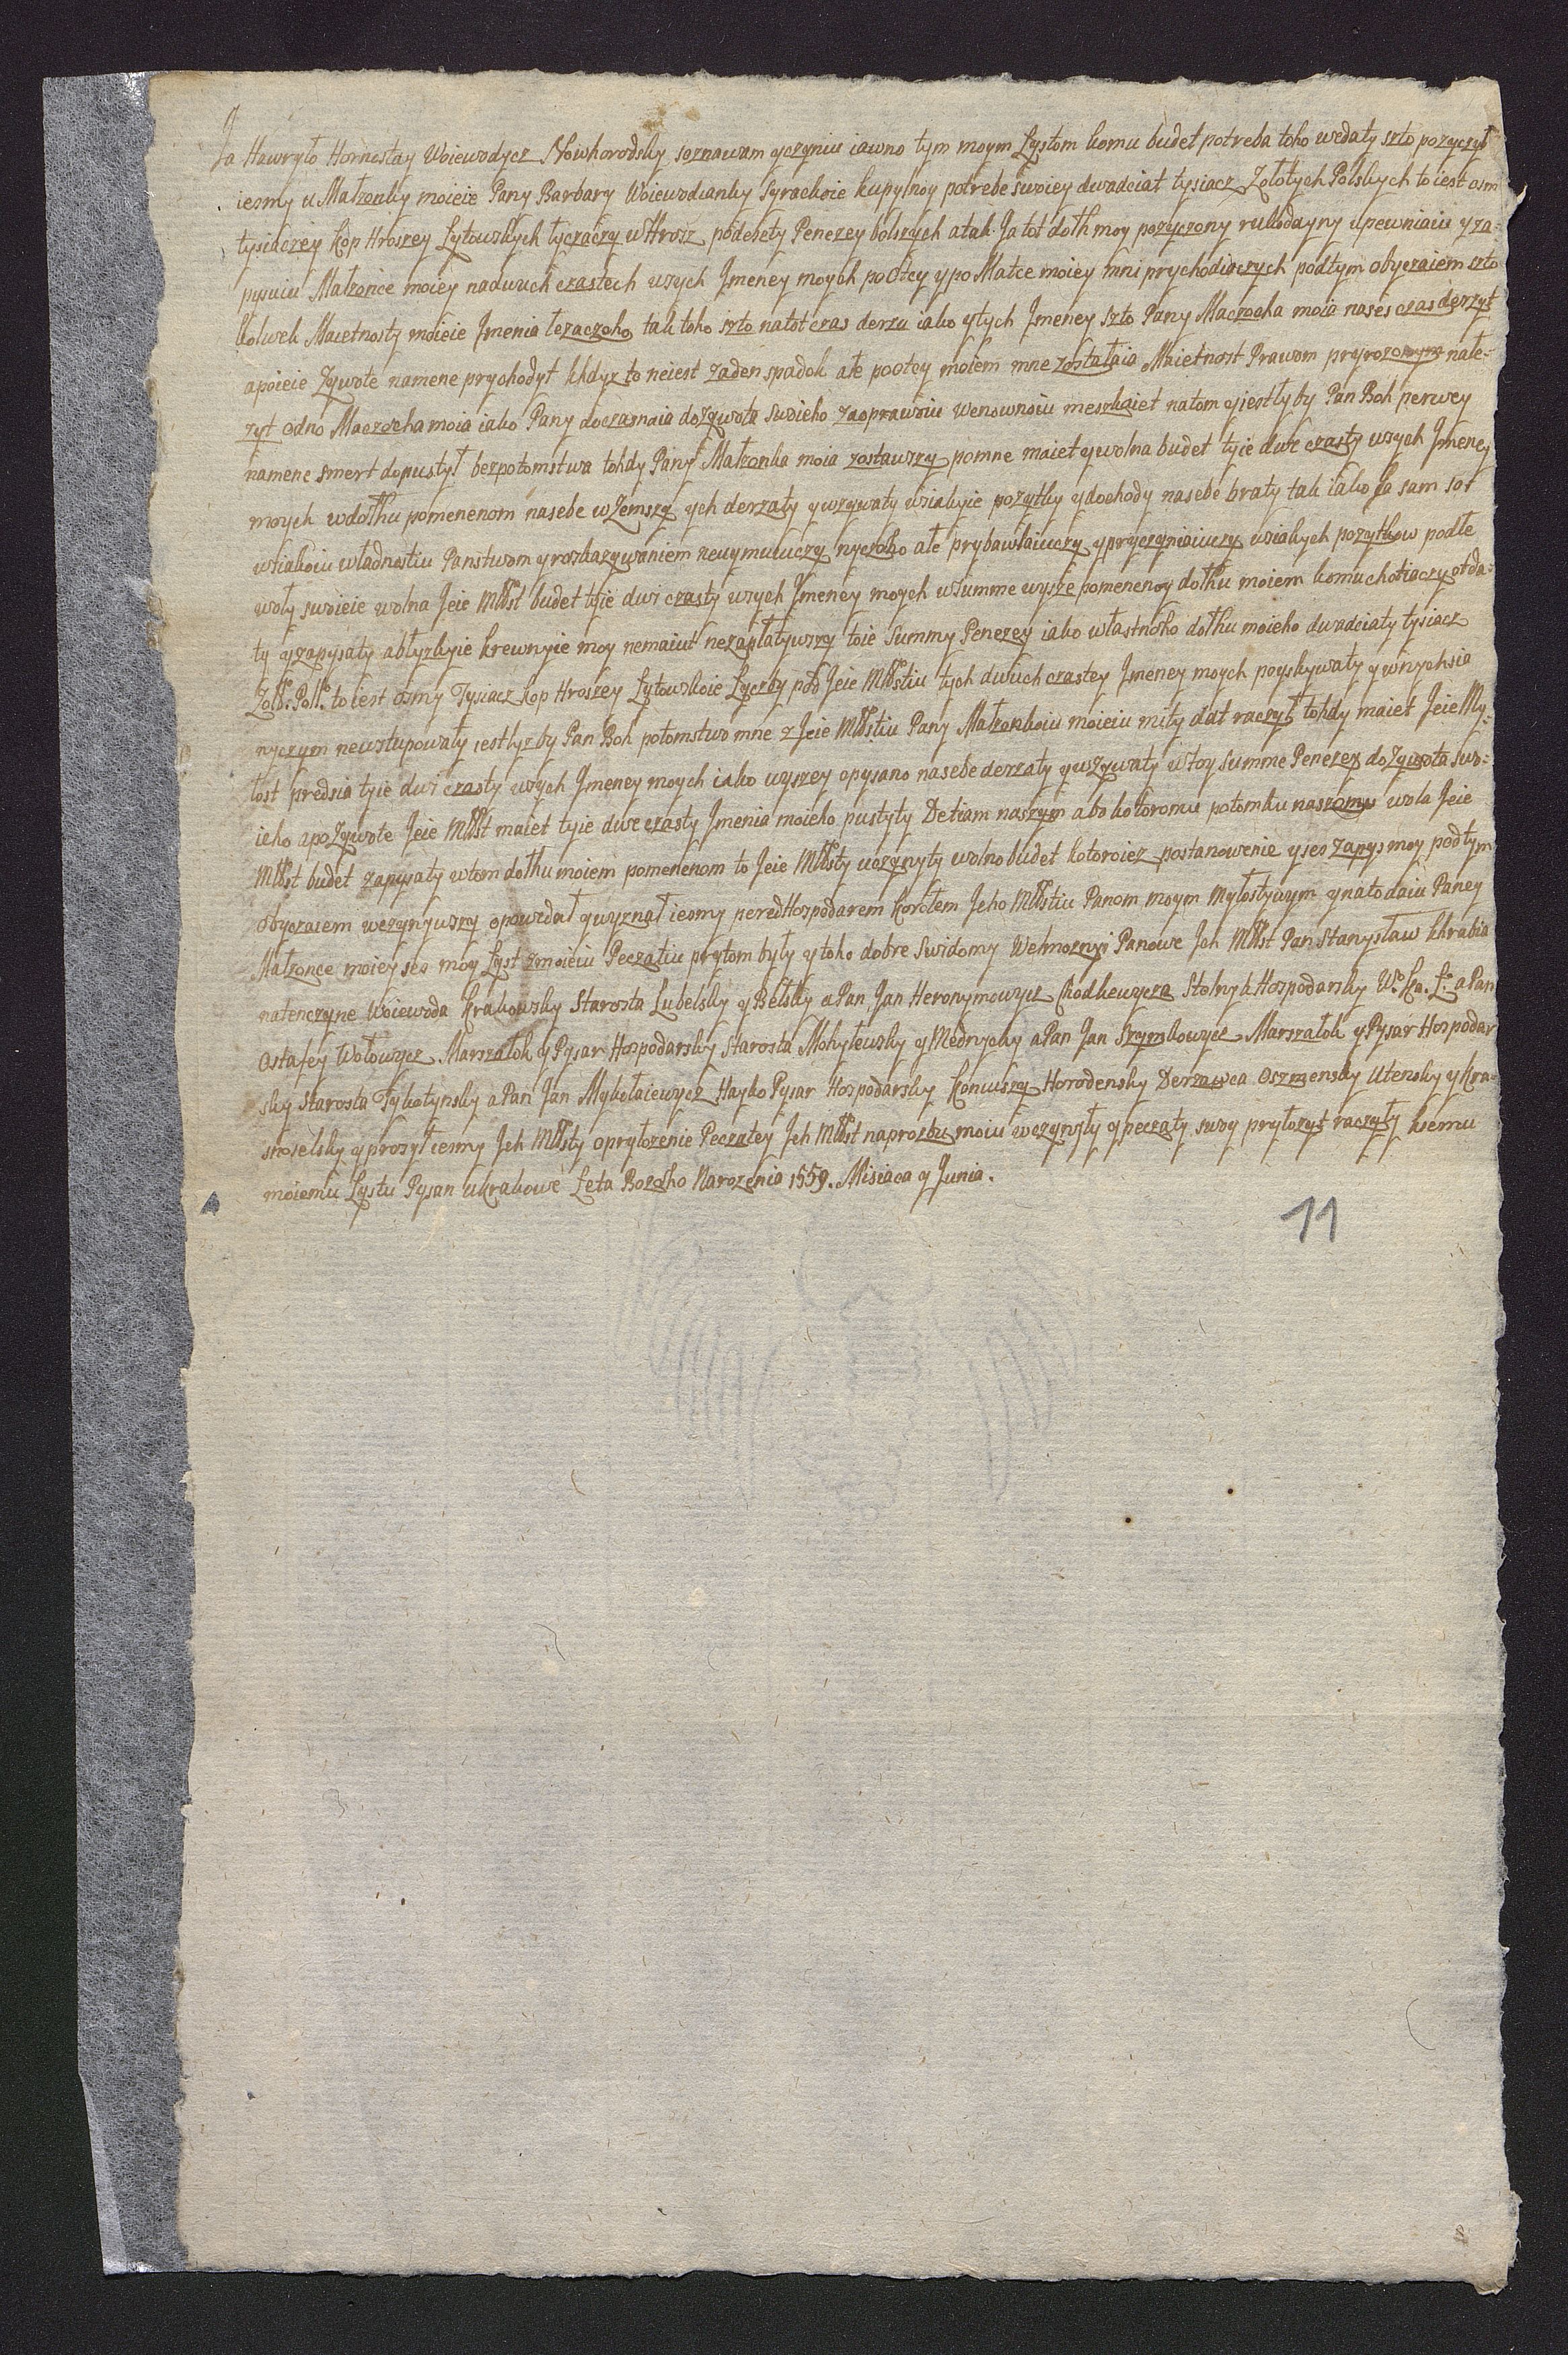 Ja Hawryło Hornostay Woiewodycz Nowhorodsky soznawam yczyniu iawno tym moym Lystom komu budet potreba toho wedaty szto pozyczył
iesmy u Małzonky moieie Pany Barbary Woiewodzanky Syrackoie kupylnoy potrebe swoiey dwadciat tysiacz Zołotych Polskych to iest osm
tysiaczey kop Hroszey Lytowskych łyczaczy w Hrosz podesety Penezey bolszych atak Ja tot dołh moy pozyczony rukodayny upewniaiu y za-
pysuiu Małzonce moiey nadwuch czastech wsych Jmeney moych po Otcy ypo Matce moiey mni prychodiaczych podtym obyczaiem szto
kolwek Maietnosty moieie Jmenia lezaczoho tak toho szto natot czas derzu iako ytych Jmeney szto Pany Maczocha moia nases czas derzyt
apoieie Zywote namene prychodyt khdyz to neiest zaden spadok ałe pootcy moiem mne zostałaia Maietnost Prawom pryrozonym nałe-
zyt odno Maczocha moia iako Pany doczasnaia doZywota swoieho zaoprawoiu wenownoiu meszkaiet natom yiestlyby Pan Boh perwey
namene smert dopustył bezpotomstwa tohdy Pany Małzonka moia zostawszy pomne maiet ywolna budet tyie dwe czasty wsych Jmeney
moych wdołhu pomenenom nasebe wZemszy ych derzaty ywzywaty wsiakyie pozytky ydochody nasebe braty tak iako Ja sam sot
wsiakoiu władnostiu Panstwom yroskazywaniem neuymuiuczy nyczoho ałe prybawlaiuczy ypryczyniaiuczy wsiakych pozytkow podłe
woły swoieie wolna Jeie Młst budet tyie dwi czasty wsych Jmeney moych wsumme wysze pomenenoy dołhu moiem komuchotiaczy otda-
ty yzapysaty abłyzkyie krewnyie moy nemaiut nezapłatywszy toie Summy Penezey iako własnoho dołhu moieho dwadciaty tysiacz
Zoł: Poł: to iest osmy Tysiacz kop Hroszey Lytowskoie Lyczby pod Jeie Młstiu tych dwuch czastey Jmeney moych poyskywaty ywnychsia
nyczym neustupowaty iestlyzby Pan Boh potomstwo mne z Jeie Młstiu Pany Małzonkoiu moieiu mity dat raczył tohdy maiet Jeie My-
łost predsia tyie dwi czasty wsych Jmeney moych iako wyszey opysano nasebe derzaty ywzywaty wtoy summe Penezey doZywota swo-
ieho apoZywote Jeie Młst maiet tyie dwe czasty Jmenia moieho pustyty Detiam naszym abo kotoromu potomku naszomu wola Jeie
Młst budet zapysaty wtom dołhu moiem pomenenom to Jeie Młsty uczynyty wolno budet kotoroiez postanowenie yses zapys moy podtym
obyczaiem wczynywszy opowedał ywyznał iesmy peredHospodarem Korolem Jeho Młstiu Panom moym Myłostywym ynato daiu Paney
Małzonce moiey ses moy Lyst zmoieiu Peczatiu prytom były ytoho dobre swidomy Welmoznyi Panowe Jch Młst Pan Stanysław khrabia
natenczyne Woiewoda Krakowsky Starosta Lubelsky y Bełsky aPan Jan Heronymowycz Chodkewycza Stolnyk Hospodarsky W. Kn. L. aPan
Ostafey Wołowycz Marszałok y Pysar Hospodarsky Starosta Mohyłewsky y Mednycky aPan Jan Szymkowycz Marszałok y Pysar Hospodar
sky Starosta Tykotynsky aPan Jan Mykołaiewycz Hayko Pysar Hospodarsky Koniuszy Horodensky Derzawca Oszmensky Utensky y Kra-
snoselsky yprosył iesmy Jch Młsty oprylozenie Peczatey Jch Młst naprozbu moiu wczynyły y peczaty swoy prylozyt raczyły ksemu
moiemu Lystu Pysan ukrakowe Leta Bozoho Narozenia 1559. Misiaca y Junia.
11
8